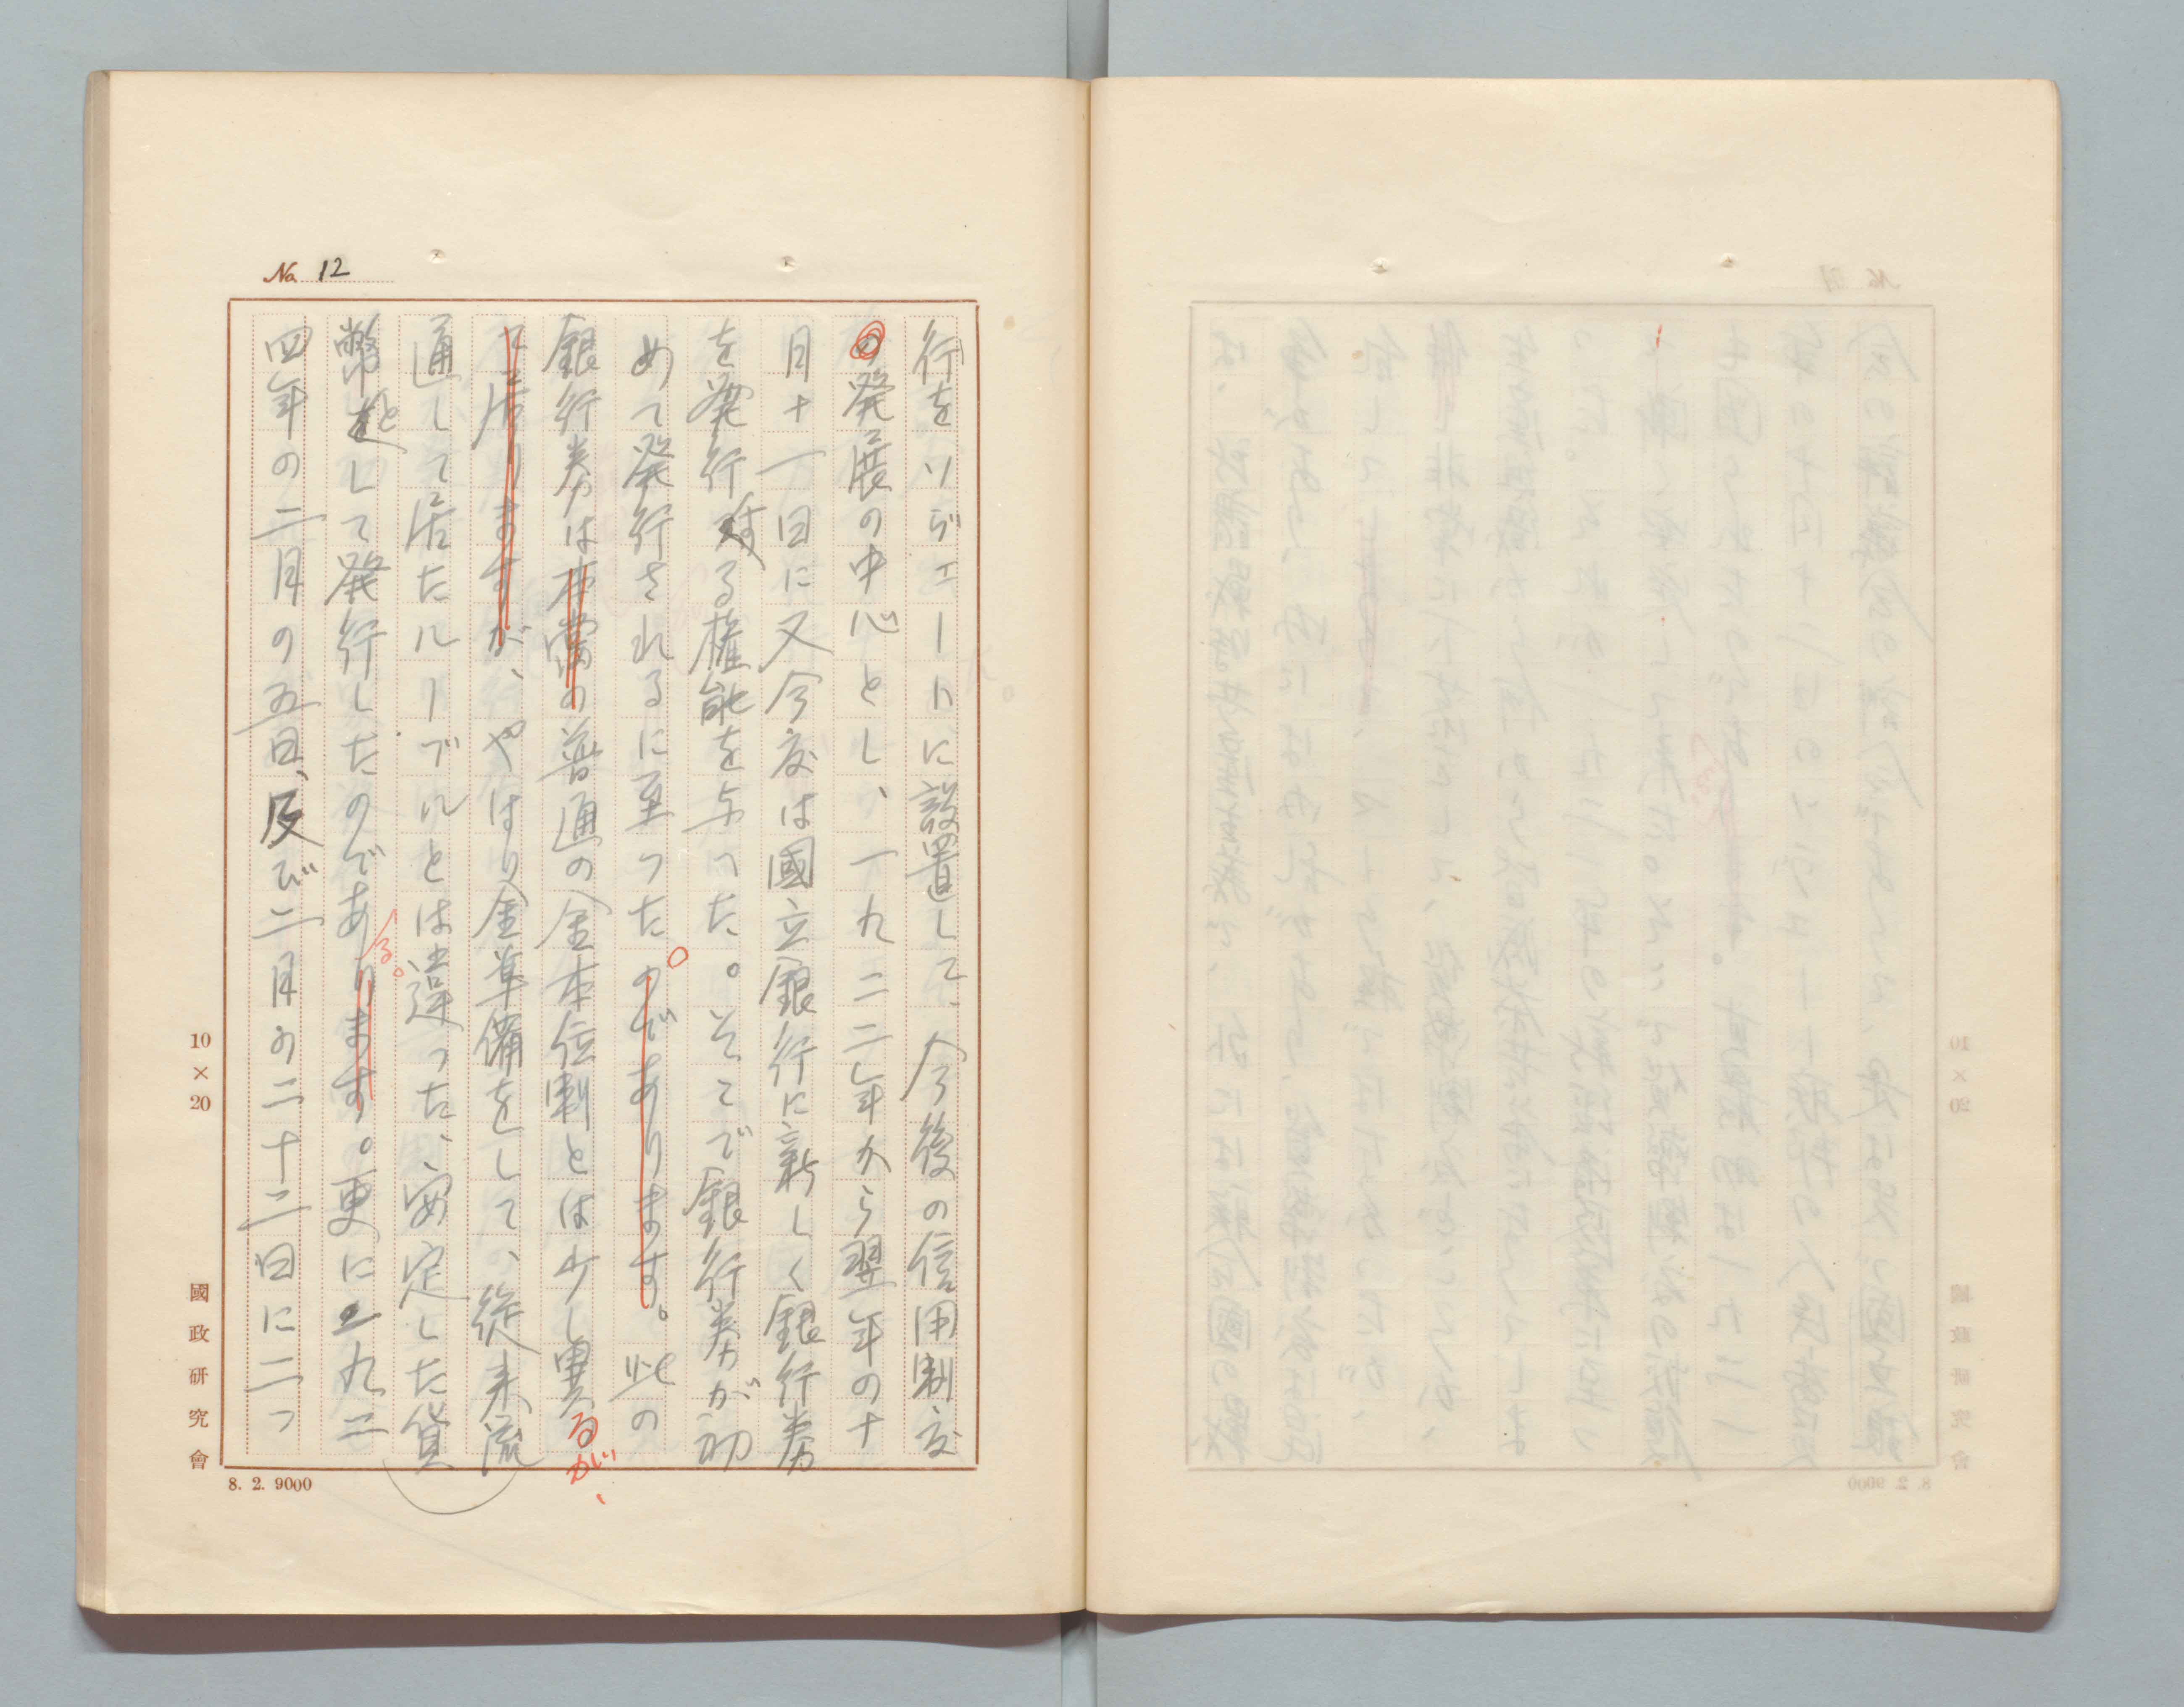 No. 12
行をソヴエートに設置して、今後の信用制度
の発展の中心とし、一九二二年から翌年の十
月十一日に又今度は國立銀行に新しく銀行券
を発行する権能を与へた。そこで銀行券が初
めて発行されるに至つた。のであります。此の
銀行券は本當の普通の金本位制とは少し異るが、
て居りますが、やはり金準備をして、従来流
通して居たルーブルとは違つた、安定した貨
幣として発行したのであります。る。更に一九二
四年の二月の五日、及び二月の二十二日に二つ
10×20
國政研究會
8. 2. 9000